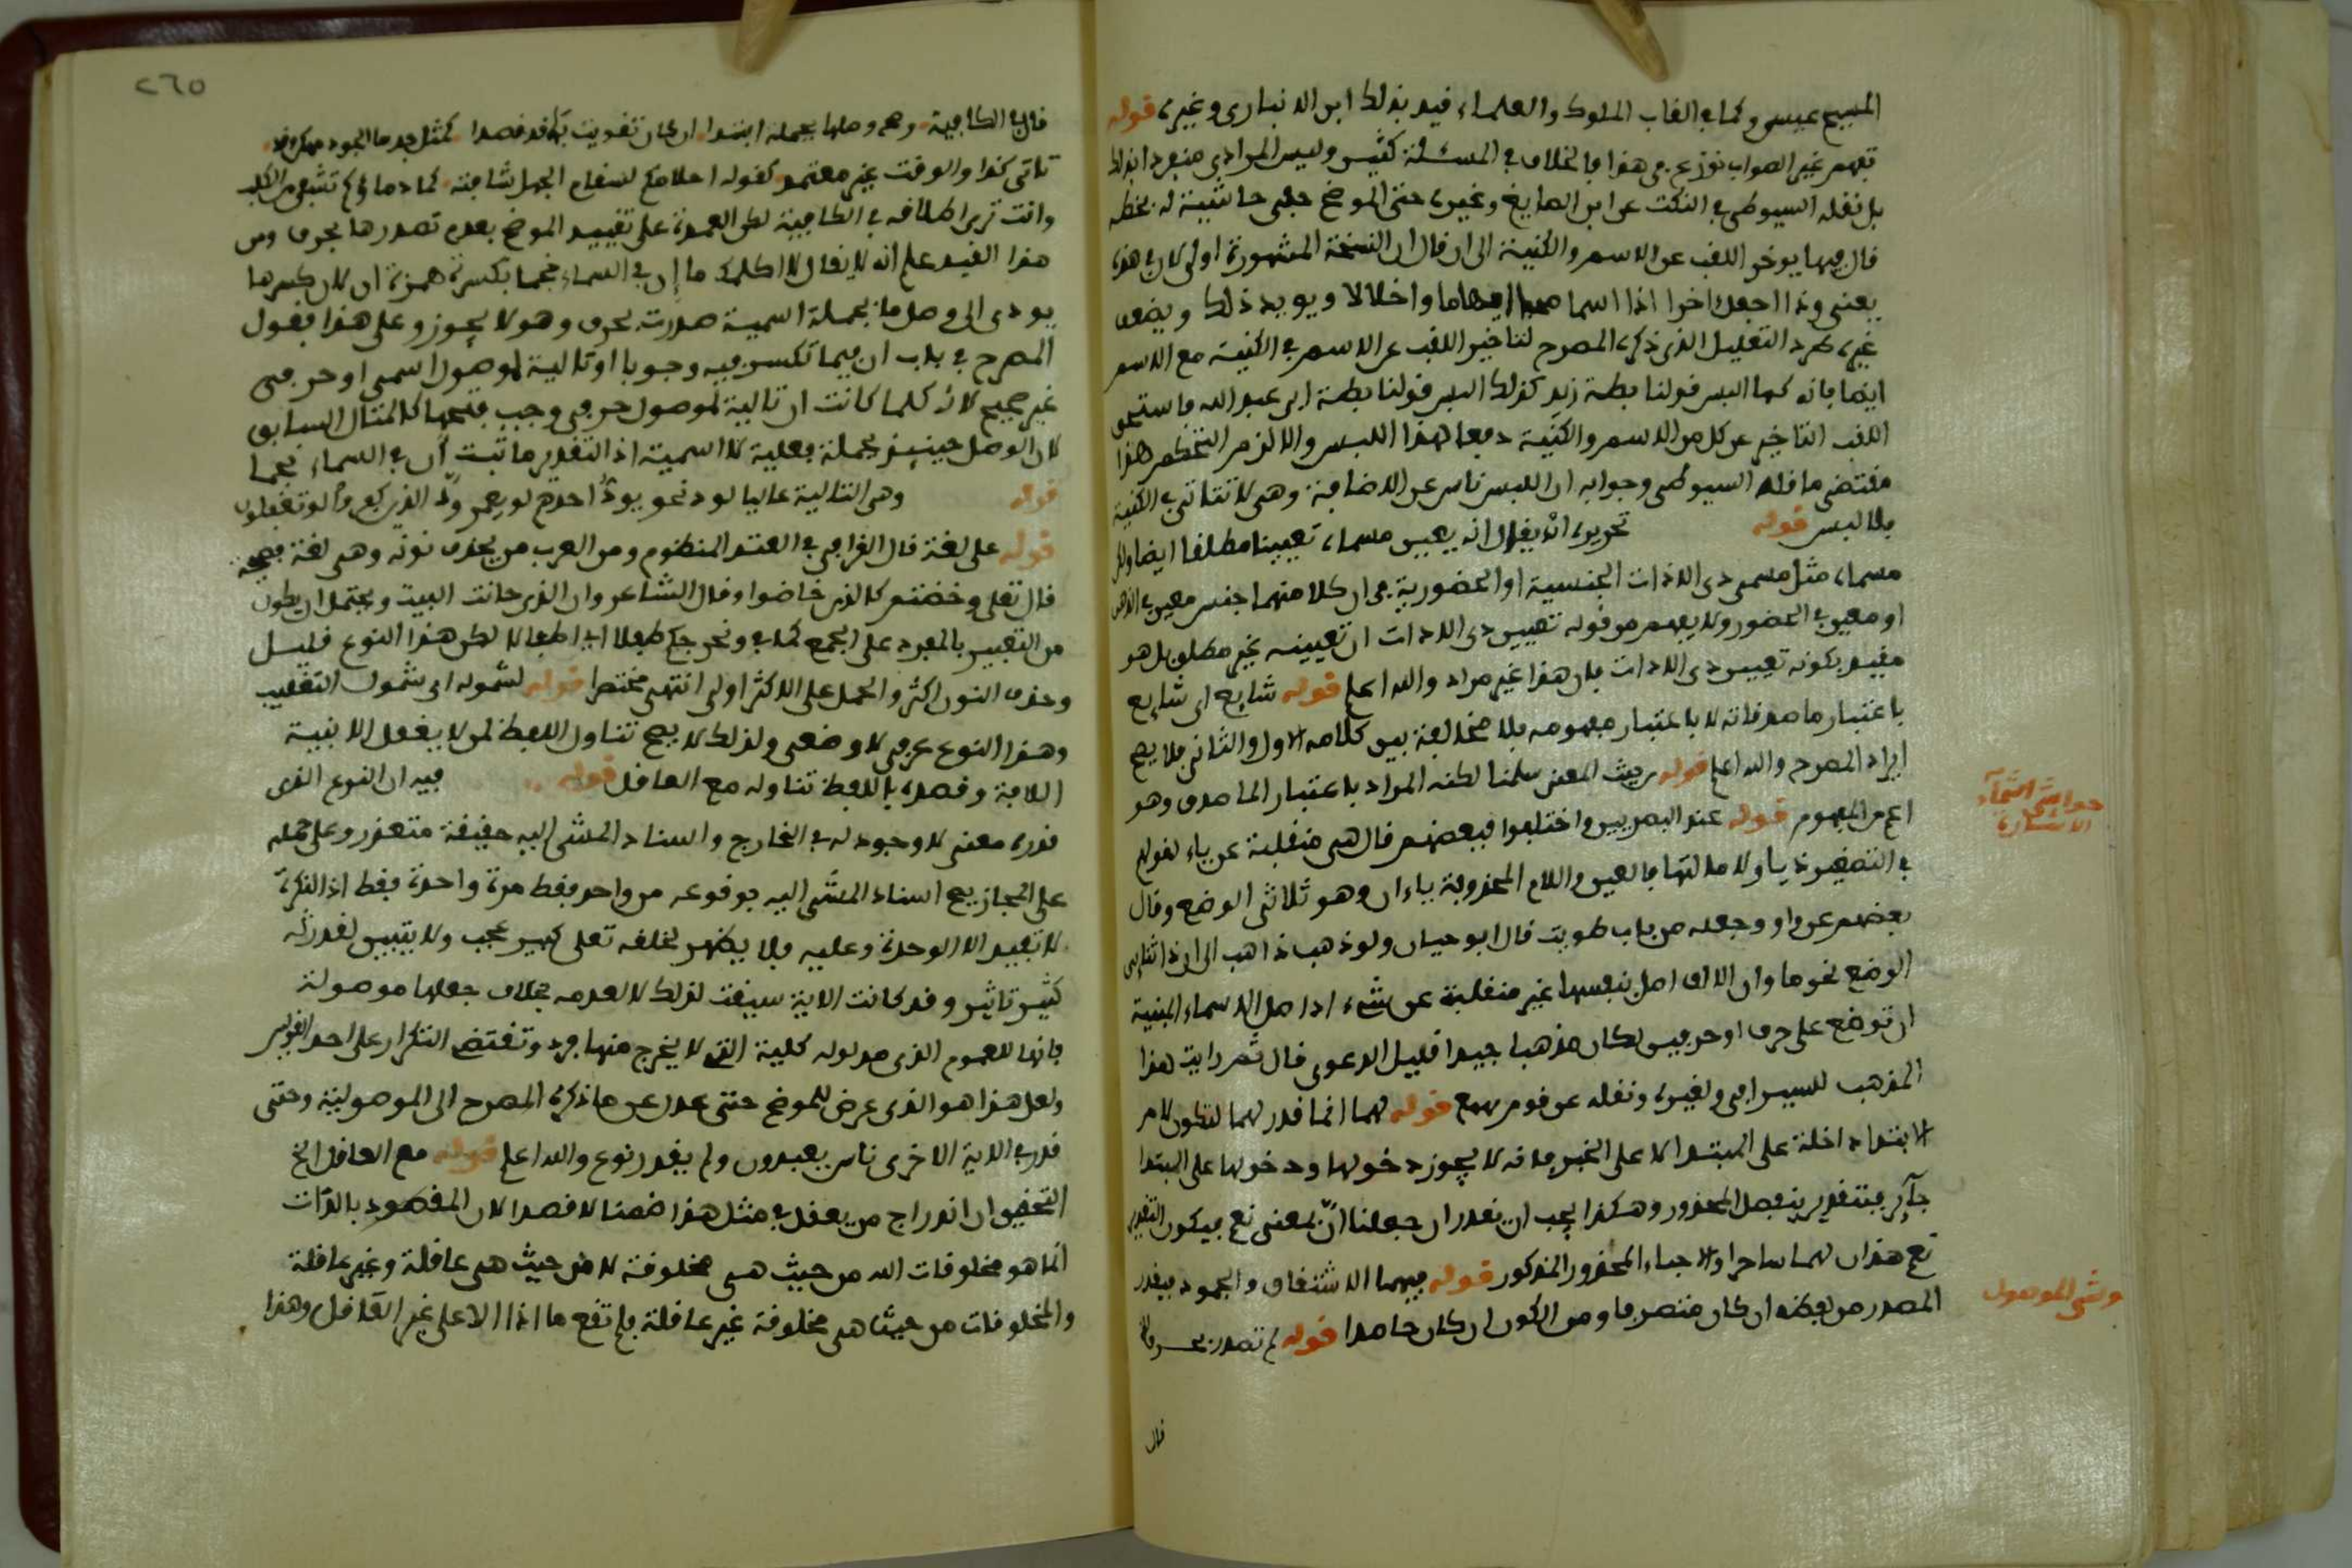 المسيح عيسى وكما في القاب الملوك والعلماء قيد بذلك ابن الانباري وغيره قوله
تفهم غير الصواب نوزع في هذا بالخلاف في المسئلة كثير وليس المرادي منفردا بذلك
بل نقله السيوطي في النكت عن ابن الصايغ وغيره حتى الموضح ففي حاشية له بخطه
قال فيها يوخر اللقب عن الاسم والكنية الى ان قال ان النسخة المشهورة اولى لان في هذه
يعنى وذا اجعل اخرا اذا اسما ايهاما واخلالا ويويد ذلك
غيره طرد التعليل الذي ذكره المصرح لتاخير اللقب عن الاسم في الكنية مع الاسم
ايضا فانه كما البس قولنا بطة زيد كذلك البس قولنا بطة ابي عبد الله فاستحق
اللقب التاخير عن كل من الاسم والكنية دفعا لهذا اللبس والا لزم التحكم هذا
مقتضى ما قاله السيوطي وجوابه ان اللبس ناس عن الاضافة وهي لا تتاتى في الكنية
بلا لبس قوله تحريره ان يقال انه يعين مسماه تعيينا مطلقا ايضا
مسماه مثل مسمى ذي الاداة الجنسية او الحضورية في ان كلا منهما جنس معين في الذهن
او معين في الحضور ولا يفهم من قوله تعيين ذي الادات ان تعيينه غير مطلق بل هو
مقيد بكونه تعيين ذي الادات فان هذا غير مراد والله اعلم قوله شايع اي شايع
باعتبار ما صدقاته لا باعتبار مفهومه فلا مخالفة بين كلامه الاول والثاني فلا يصح
ايراد المصرح والله اعلم قوله من حيث المعنى سلمنا لكنه المراد باعتبار الماصدق وهو
اعم من المفهوم قوله عند البصريين واختلفوا فبعضهم قال هي منقلبة عن ياء لقولهم
حواشي اسماء
الاشارة
في التصغير ذيا ولامالتها فالعين واللام المحذوفة ياءان وهو ثلاثي الوضع وقال
بعضهم عن واو وجعله من باب طويت قال ابو حيان ولو ذهب ذاهب الى ان ذا ثنائي
الوضع نحو ما وان الالف اصل بنفسها غير منقلبة عن شيء اذ اصل الاسماء المبنية
ان توضع على حرف او حرفين لكان مذهبا جيدا قليل الدعوى قال ثم رايت هذا
المذهب للسيرافي ولغيره ونقله عن قوم قوله لهما انما قدر لهما لتكون لام
الابتداء داخلة على المبتدا لا على الخبر فانه لا يجوز دخولها ودخولها على المبتدا
جآيز فبتقدير ينفصل المحذور وهكذا يجب ان نقدر ان جعلنا انّ بمعنى نعم فيكون التقدير
نعم هذان لهما ساحران والا جاء المحذور المذكور قوله فيهما الاشتقاق والجمود فيقدر
وشى الموصول
المصدر من لفظه ان كان متصرفا ومن الكون ان كان جامدا قوله لم تصدر بحرف
قال
٢٦٥
قال في الكافية وهي وصلها بجملة ابتدا
تاتي كذا والوقت غير معتمد كقوله احلامكم لسقام الجهل شافية كما دماوكم تشفي من الكلب
وانت ترى اطلاقه في الكافية لكن العمدة على تقييد الموضح بعدم تصدرها بحرف ومن
هذا القيد علم انه لا يقال لا اكلمك ما إن في السماء نجما بكسرة همزة ان لان كسرها
يودي الى وصل ما بجملة اسمية صدرت بحرف وهو لا يجوز وعلى هذا فقول
المصرح في باب ان فيما تكسر فيه وجوبا او تالية لموصول اسمي او حرفي
غير صحيح لانه كلما كانت ان تالية لموصول حرفي وجب فتحها كالمثال السابق
لان الوصل حينيذ بجملة فعلية لا اسمية اذ التقدير ما ثبت أن في السماء نجما
قوله وهي التالية غالبا لود نحو يود احدهم لو يعمر ودّ الذين كفروا لو تغفلون
قوله على لغة قال القرافي في العقد المنظوم ومن العرب من يحذف نونه وهي لغة فصيحة
قال تعلى وخضتم كالذي خاضوا وقال الشاعر وان الذي حانت البيت ويحتمل ان يكون
من التعبير بالمفرد على الجمع كما في ونخرجكم طفلا اي اطفالا لكن هذا النوع قليل
وحذف النون اكثر والحمل على الاكثر اولى انتهى مختصرا قوله لشموله اي شمول التغليب
وهذا النوع عرفي لا وضعي ولذلك لا يصح تناول اللفظ لمن لا يعقل الا بنية
اللافظ وقصده باللفظ تناوله مع العاقل قوله فيه ان النوع الذي
قدره معنى لا وجود له في الخارج واسناد المشي اليه حقيقة متعذر وعلى حمله
على المجاز يصح اسناد المشي اليه بوقوعه من واحد فقط مرة واحدة فقط اذ النكرة
لا تفيد الا الوحدة وعليه فلا يظهر لخلقه تعلى كبير عجب ولا يتبين لقدرته
كثير تاثير وقد كانت الاية سيقت لذلك لا لعدمه بخلاف جعلها موصولة
فانها للعموم الذي مدلوله كلية التي لا يخرج منها فرد وتقتضي التكرار على احد القولين
ولعل هذا هو الذي عرض للموضح حتى عدل عن ما ذكره المصرح الى الموصولية وحتى
قدر في الاية الاخرى ناس يعبدون ولم يقدر نوع والله اعلم قوله مع العاقل الخ
التحقيق ان اندراج من يعقل في مثل هذا ضمنا لا قصدا لان المقصود بالذات
انما هو مخلوقات الله من حيث هي مخلوقة لا من حيث هي عاقلة وغير عاقلة
والمخلوقات من حيث هي مخلوقة غير عاقلة فلم تقع ما اذا الا على غير العاقل وهذا